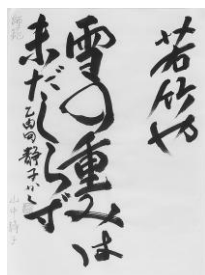 若竹や
雪の重みは
未だしらず